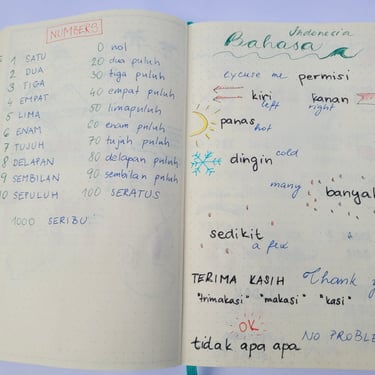 NUMBERS
1 SATU
2 DUA
3 TIGA
4 EMPAT
5 LIMA
6 ENAM
7 TUJUH
8 DELAPAN
9 SEMBILAN
10 SEPULUH
1000 SERIBU
0 nol
20 dua puluh
30 tiga puluh
40 empat puluh
50 limapuluh
60 enam puluh
70 tujuh puluh
80 delapan puluh
90 sembilan puluh
100 SERATUS
Indonesia
Bahasa
excuse me permisi
kiri kanan
left right
panas
hot
cold
dingin
many banyak
sedikit
a few
TERIMA KASIH Thank
"trimakasi" "makasi" "kasi"
OK
tidak apa apa NO PROBLE